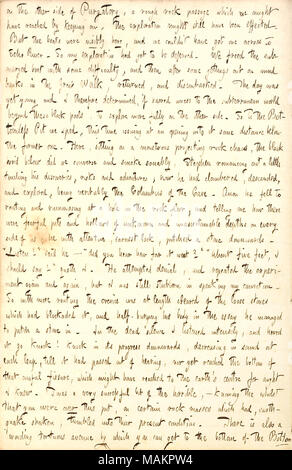 on the other side of Purgatory, a rough rock passage which we might
have reached by keeping on. The exploration might still have been effected.
But the boats were nearly here, and we couldn't have got one across to
Echo River. So my exploration had got to be deferred. We found the
but with some difficulty, and then after some pottings out on mud
banks in the Great Walk returned, and disembarked. The day was
yet young and I therefore determined, if access to the subterranean world
beyond these black pools to explore more fully on the other side. So to the Bottomless
Pit we sped, this time issuing at an opening into it some distance below
the former one. Here, sitting on a monstrous projecting rock chasm, the black
evil odour did we converse and smoke sociably. Stephen romancing out a little,
his discoveries, risks and adventures, how he had clambered, descended,
and explored, being veritably the Columbus of the Cave. Anon he fell to
routing and rummaging at a hole in the rock floor, and telling me how there
were fearful pits and hollows of unknown and unascertainable depths on every
side of us, he with attentive, earnest look, pitched a stone downwards.
"Listen!" said he — "did you hear how far it went?" "About five feet, I
should say" quoth I. He attempted denial, and repeated the experiment
again and again, but I was still stubborn in speaking my conviction.
So with more routing the crevice was at length cleared of the loose stones
which had blockaded it, and half-burying his body in the essay he managed
to pitch a stone in. In the dead silence I listened intensely, and heard
it go knock! knock in its progress downwards, decreasing in sound at
each tap, till it had passed out of hearing, nor yet reached the bottom of
that awful fissure, which might have reached to the earth's centre for aught I
knew. 'Twas a very successful bit of the horrible, — knowing the whilst
that you were over this pit, on certain rock masses which had, earthquake
shaken tumbled into their present condition. There is also a
winding tortuous avenue by which you can get to the bottom of the Bottom
alamy
MAKPW4